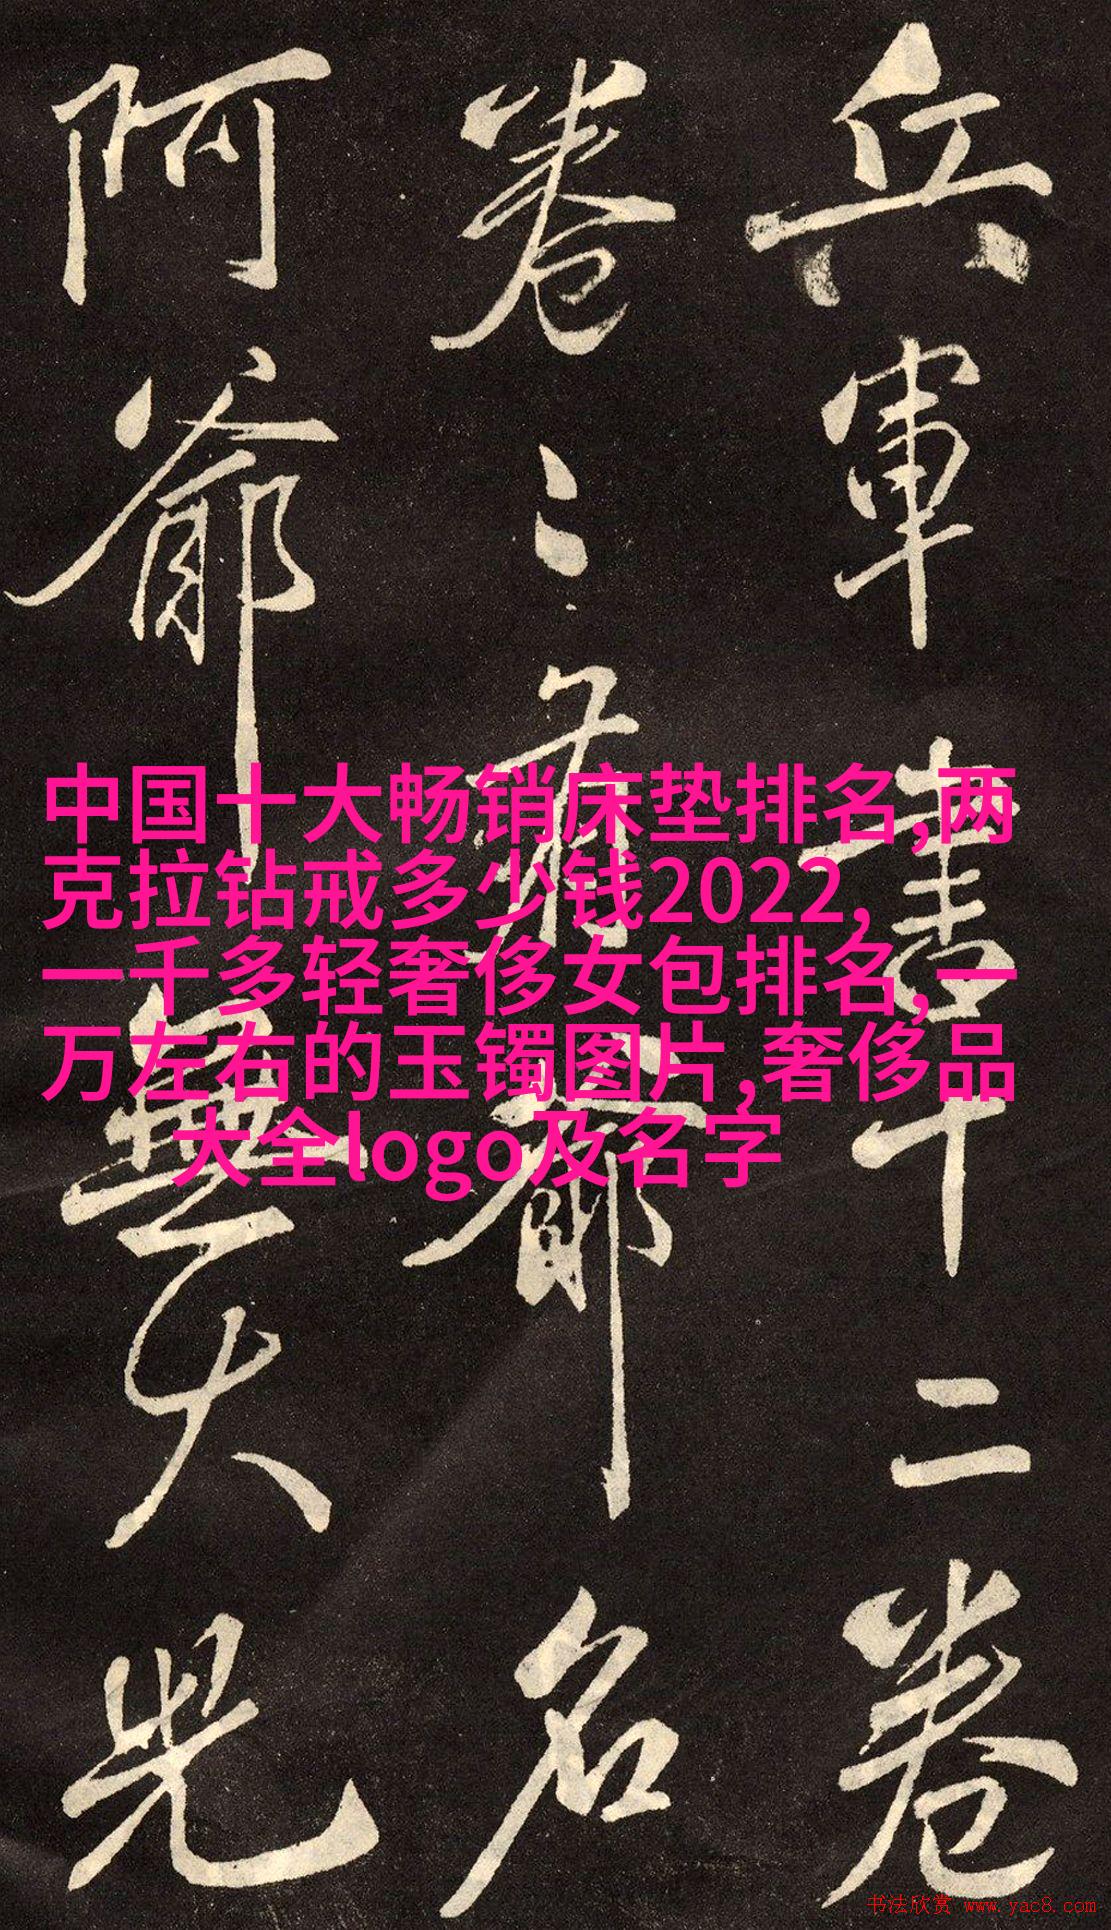 兵軍書十二卷
卷〻有爺名
阿爺無大兒
中国十大畅销床垫排名,两
克拉钻戒多少钱2022,
一千多轻奢侈女包排名,一
万左右的玉镯图片,奢侈品
大全logo及名字
书法欣赏 www.yac8.com